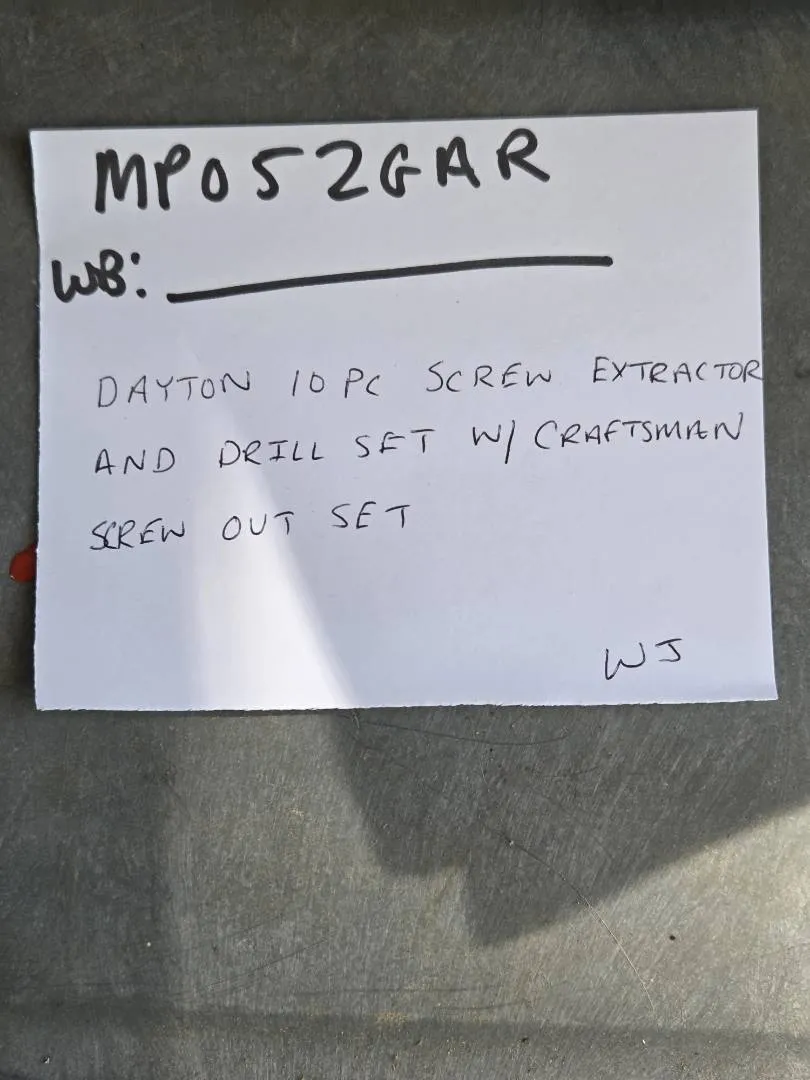 MP052GAR
WB: 
DAYTON 10 PC SCREW EXTRACTOR
AND DRILL SET W/ CRAFTSMAN
SCREW OUT SET
WJ